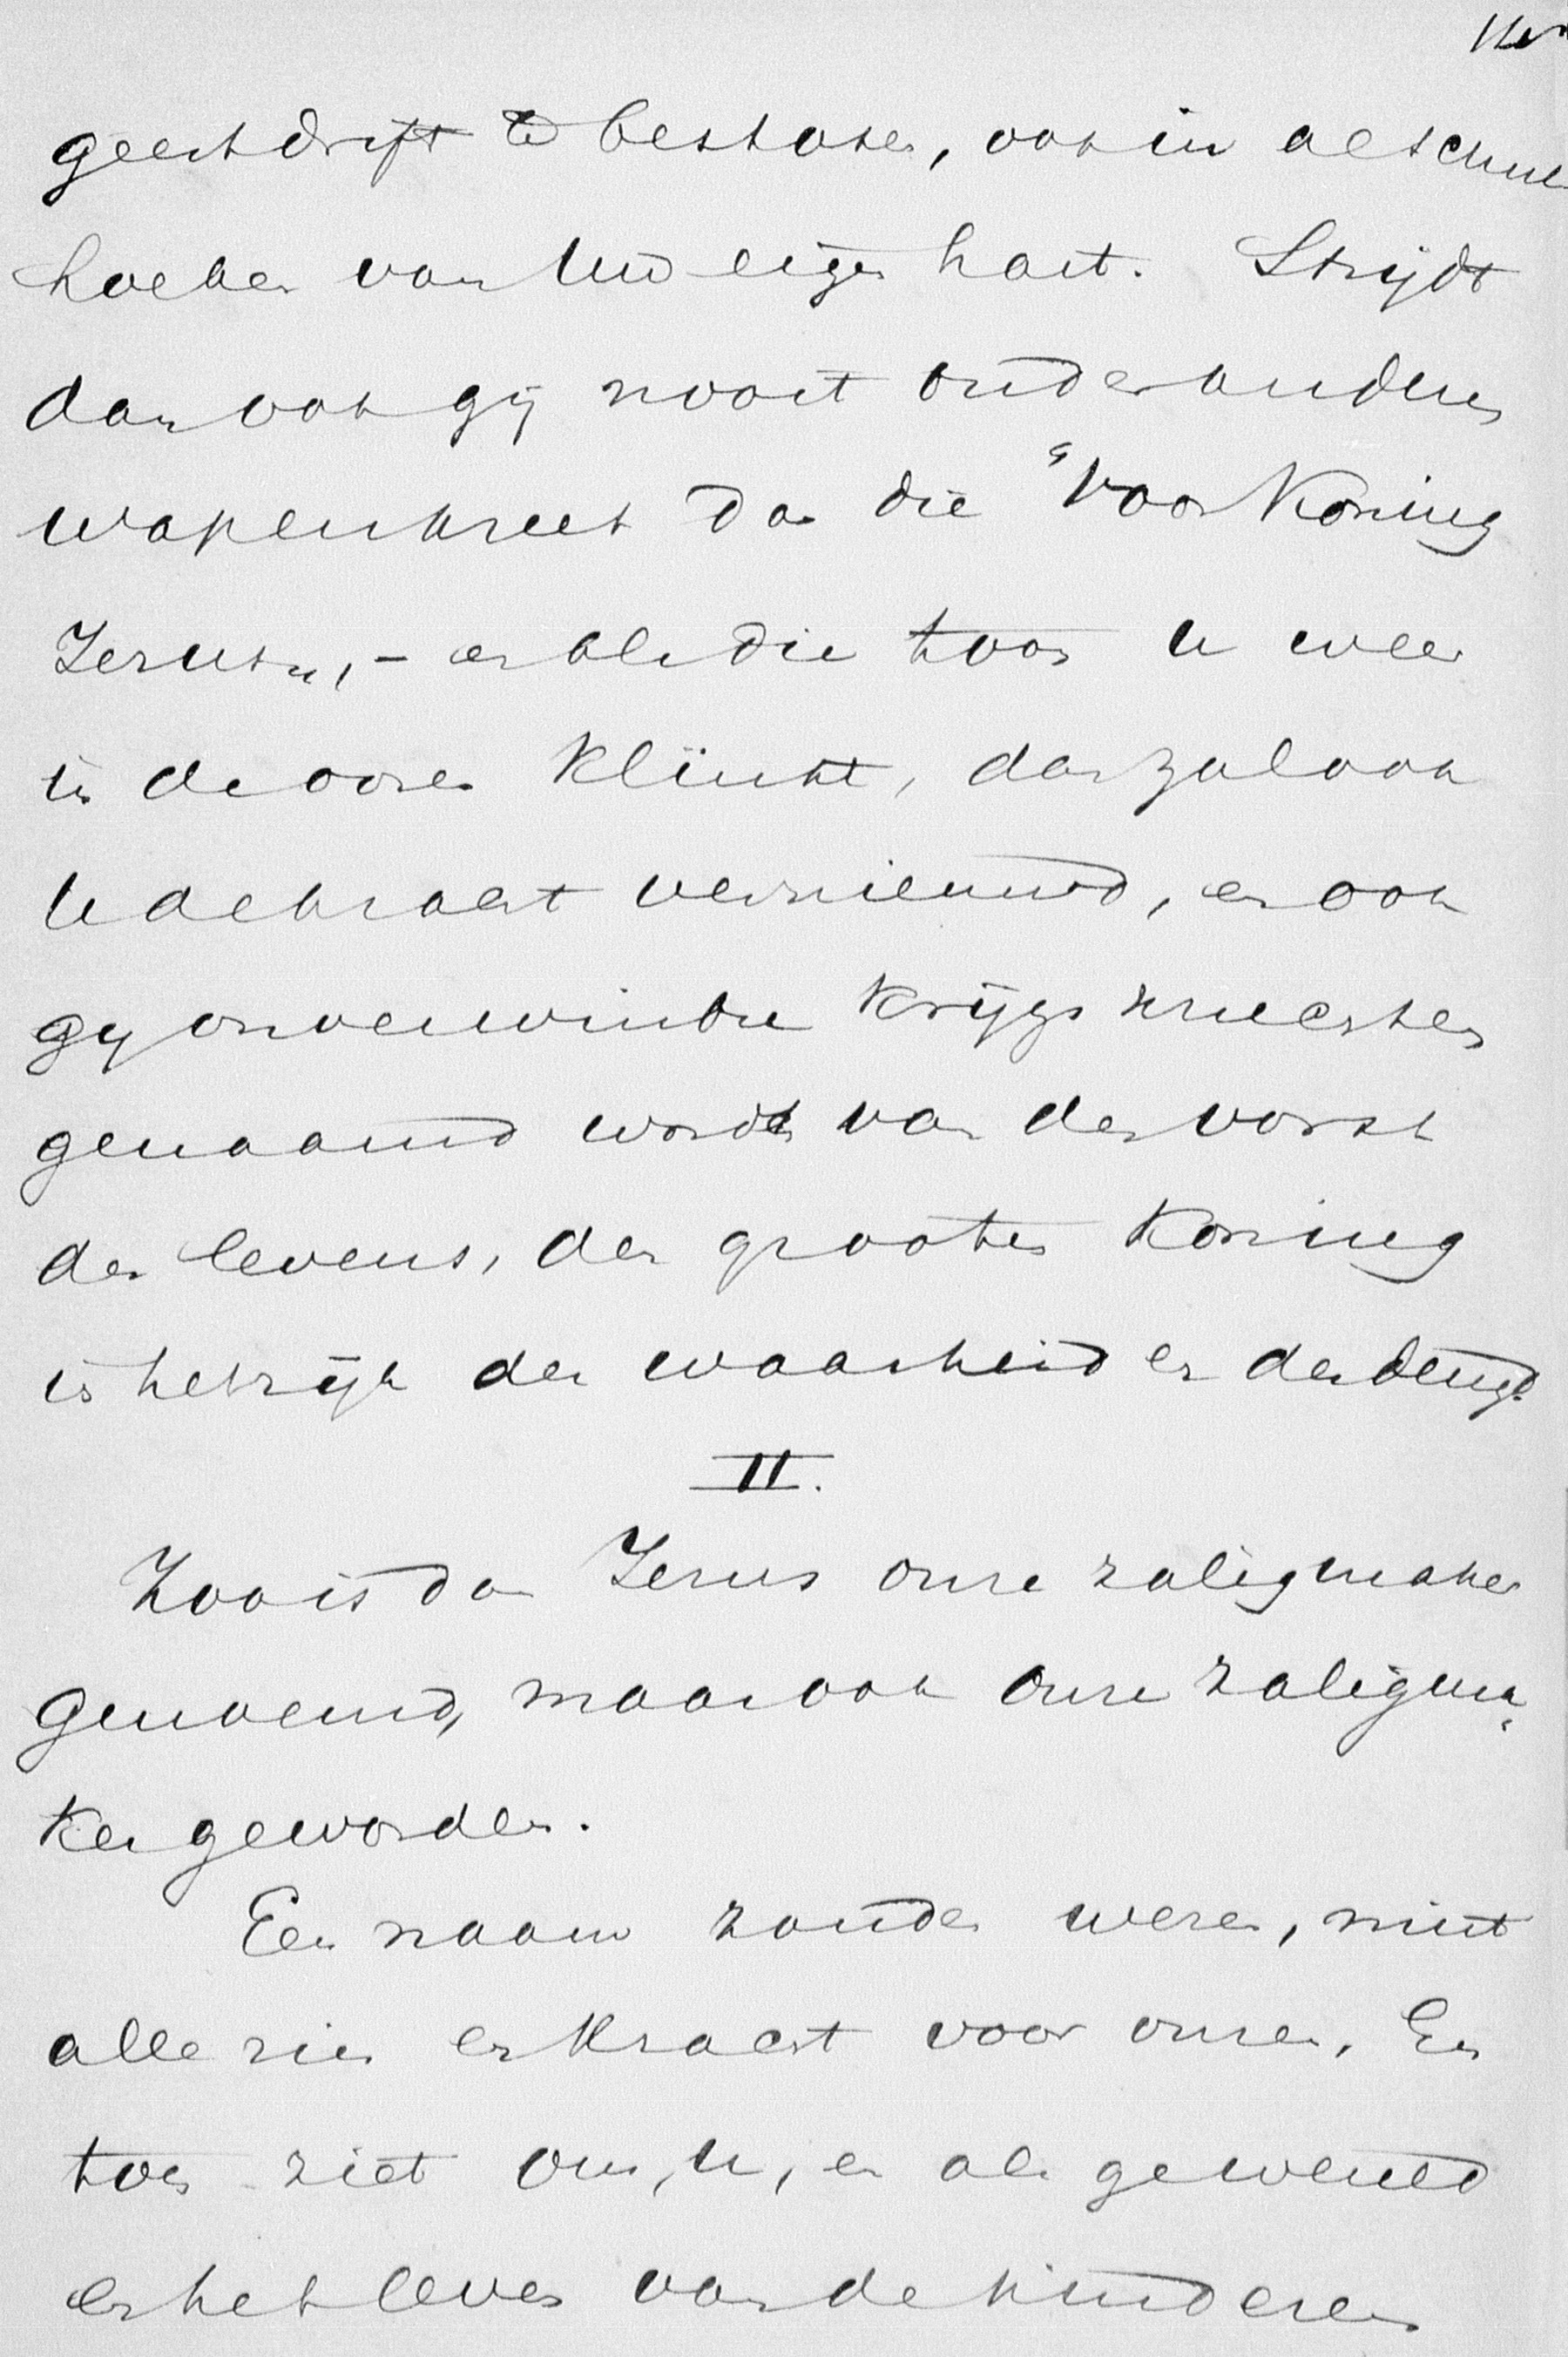 geestdrift te bestoken, ook in de schuil
hoeken van Uw eigen hart. Strijdt
dan ook gij nooit onder anderen
wapenkreet dan die "Voor Koning
Jezus", - en als die toon U weer
in de ooren klinkt, dan zal ook
U de kracht vernieuwd, en ook
gy onverwinbre krijgsknechten
genaamd worden van den vorst
des levens, den grooten Koning
in het rijk der waarheid en der deugd.
II.
Zoo is dan Jezus onze zaligmaker
genoemd, maar ook onze zaligma„
ker geworden.
Een naam zonder wezen, mist
alle zin en kracht voor onzen.
toch ziet om U, en als gewend
en het leven van de kinderen